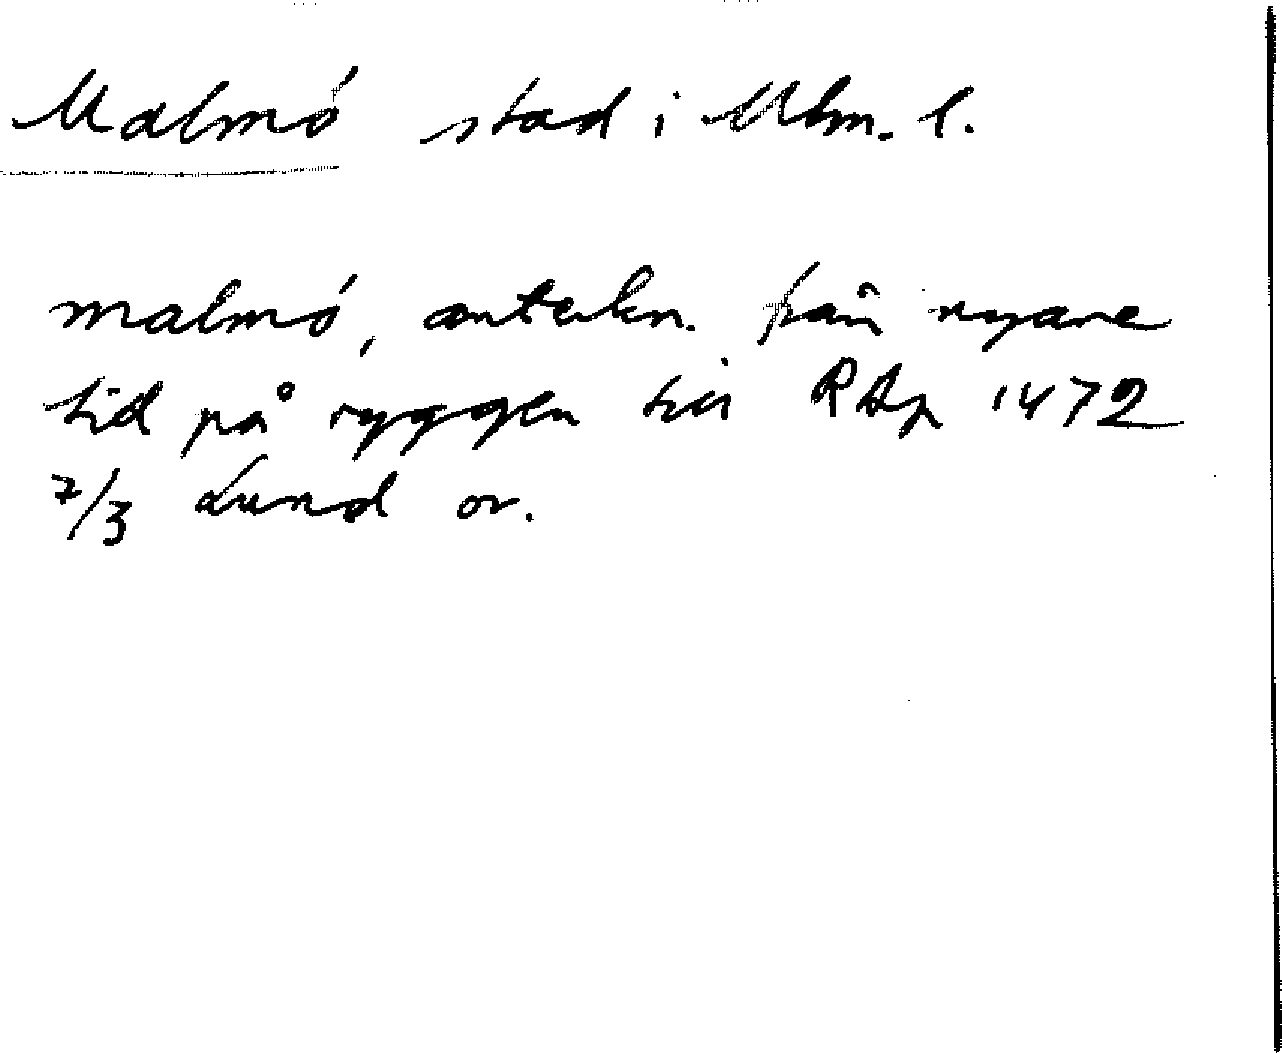 Malmö stad i Mlm. l.
malmö, anteckn. från nyare
tid på ryggen till RAp 1472
7/3 Lund or.